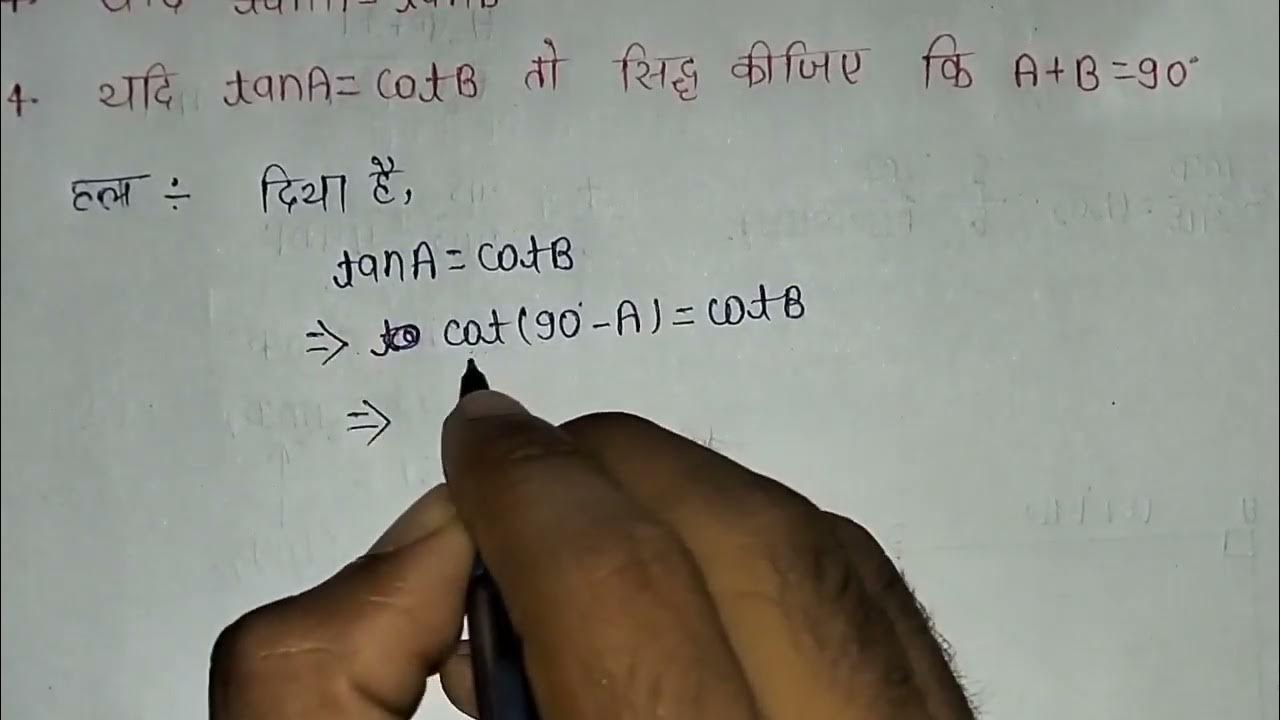 4. यदि tanA = cotB तो सिद्ध कीजिए कि A+B=90°
हल ÷ दिया है,
tanA = cotB
⇒ cot(90°-A) = cotB
⇒